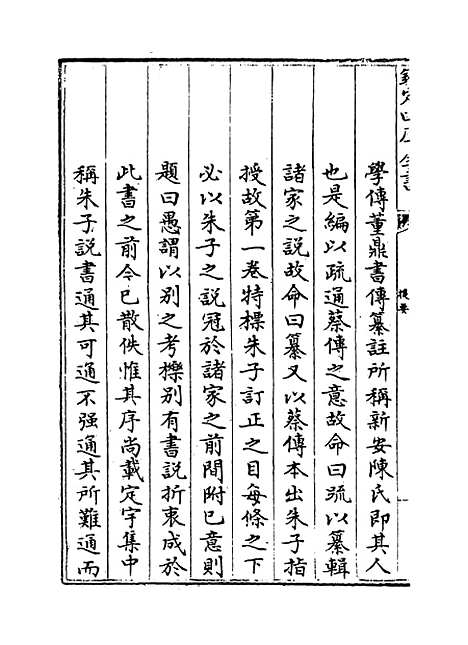 欽定四庫全書
提要
學傳董鼎書傳纂註所稱新安陳氏即其人
也是編以疏通蔡傳之意故命曰疏以纂輯
諸家之說故命曰纂又以蔡傳本出朱子指
授故第一卷特標朱子訂正之目每條之下
必以朱子之說冠於諸家之前間附己意則
題曰愚謂以別之考櫟別有書說折衷成於
此書之前今已散佚惟其序尚載定宇集中
稱朱子說書通其可通不强通其所難通而